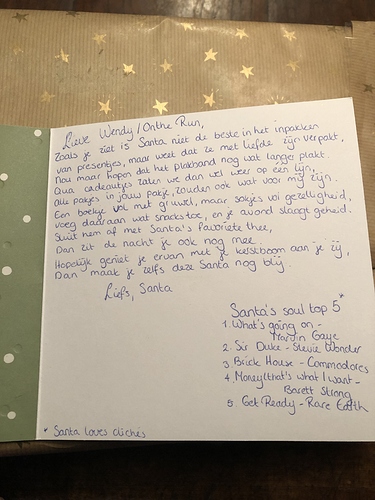 Lieve Wendy / Onthe Run,
Zoals je ziet is Santa niet de beste in het inpakken
van presentjes, maar weet dat ze met liefde zijn verpakt.
Nou maar hopen dat het plakband nog wat langer plakt.
Qua cadeautjes zaten we dan wel weer op een lijn,
Alle pakjes in jouw pakje, zouden ook wat voor mij zijn.
Een boekje vol met gruwel, maar sokjes voor gezelligheid,
voeg daaraan wat snacks toe, en je avond slaagt geheid.
Sluit hem af met Santa's favoriete thee,
Dan zit de nacht je ook nog mee.
Hopelijk geniet je ervan met je kerstboom aan je zij,
Dan maak je zelfs deze Santa nog blij.
Liefs, Santa
Santa's soul top 5*
1. What's going on -
Marvin Gaye
2. Sir Duke - Stevie Wonder
3. Brick House - Commodores
4. Money (that's what I want -
Barett Strong
5. Get Ready - Rare Earth
* Santa loves cliches